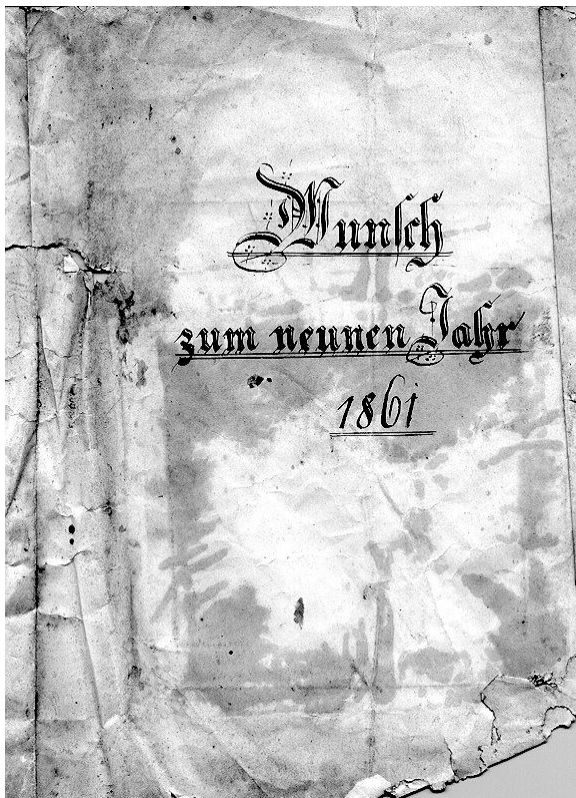 Wunsch
zum neunen Jahr
1861